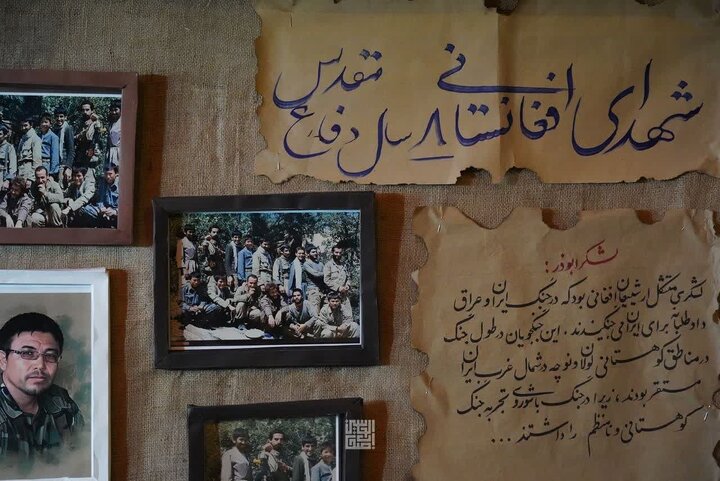 شهدای افغانستانی
۸ سال دفاع مقدس
لشکر ابوذر:
لشکری متشکل از شیعیان افغانی بود که در جنگ ایران و عراق
داوطلبانه برای ایران می جنگیدند. این جنگجویان در طول جنگ
در مناطق کوهستانی لولان و نوچه در شمال غرب ایران
مستقر بودند، زیرا در جنگ با شوروی تجربه جنگ
کوهستانی و نامنظم را داشتند ...